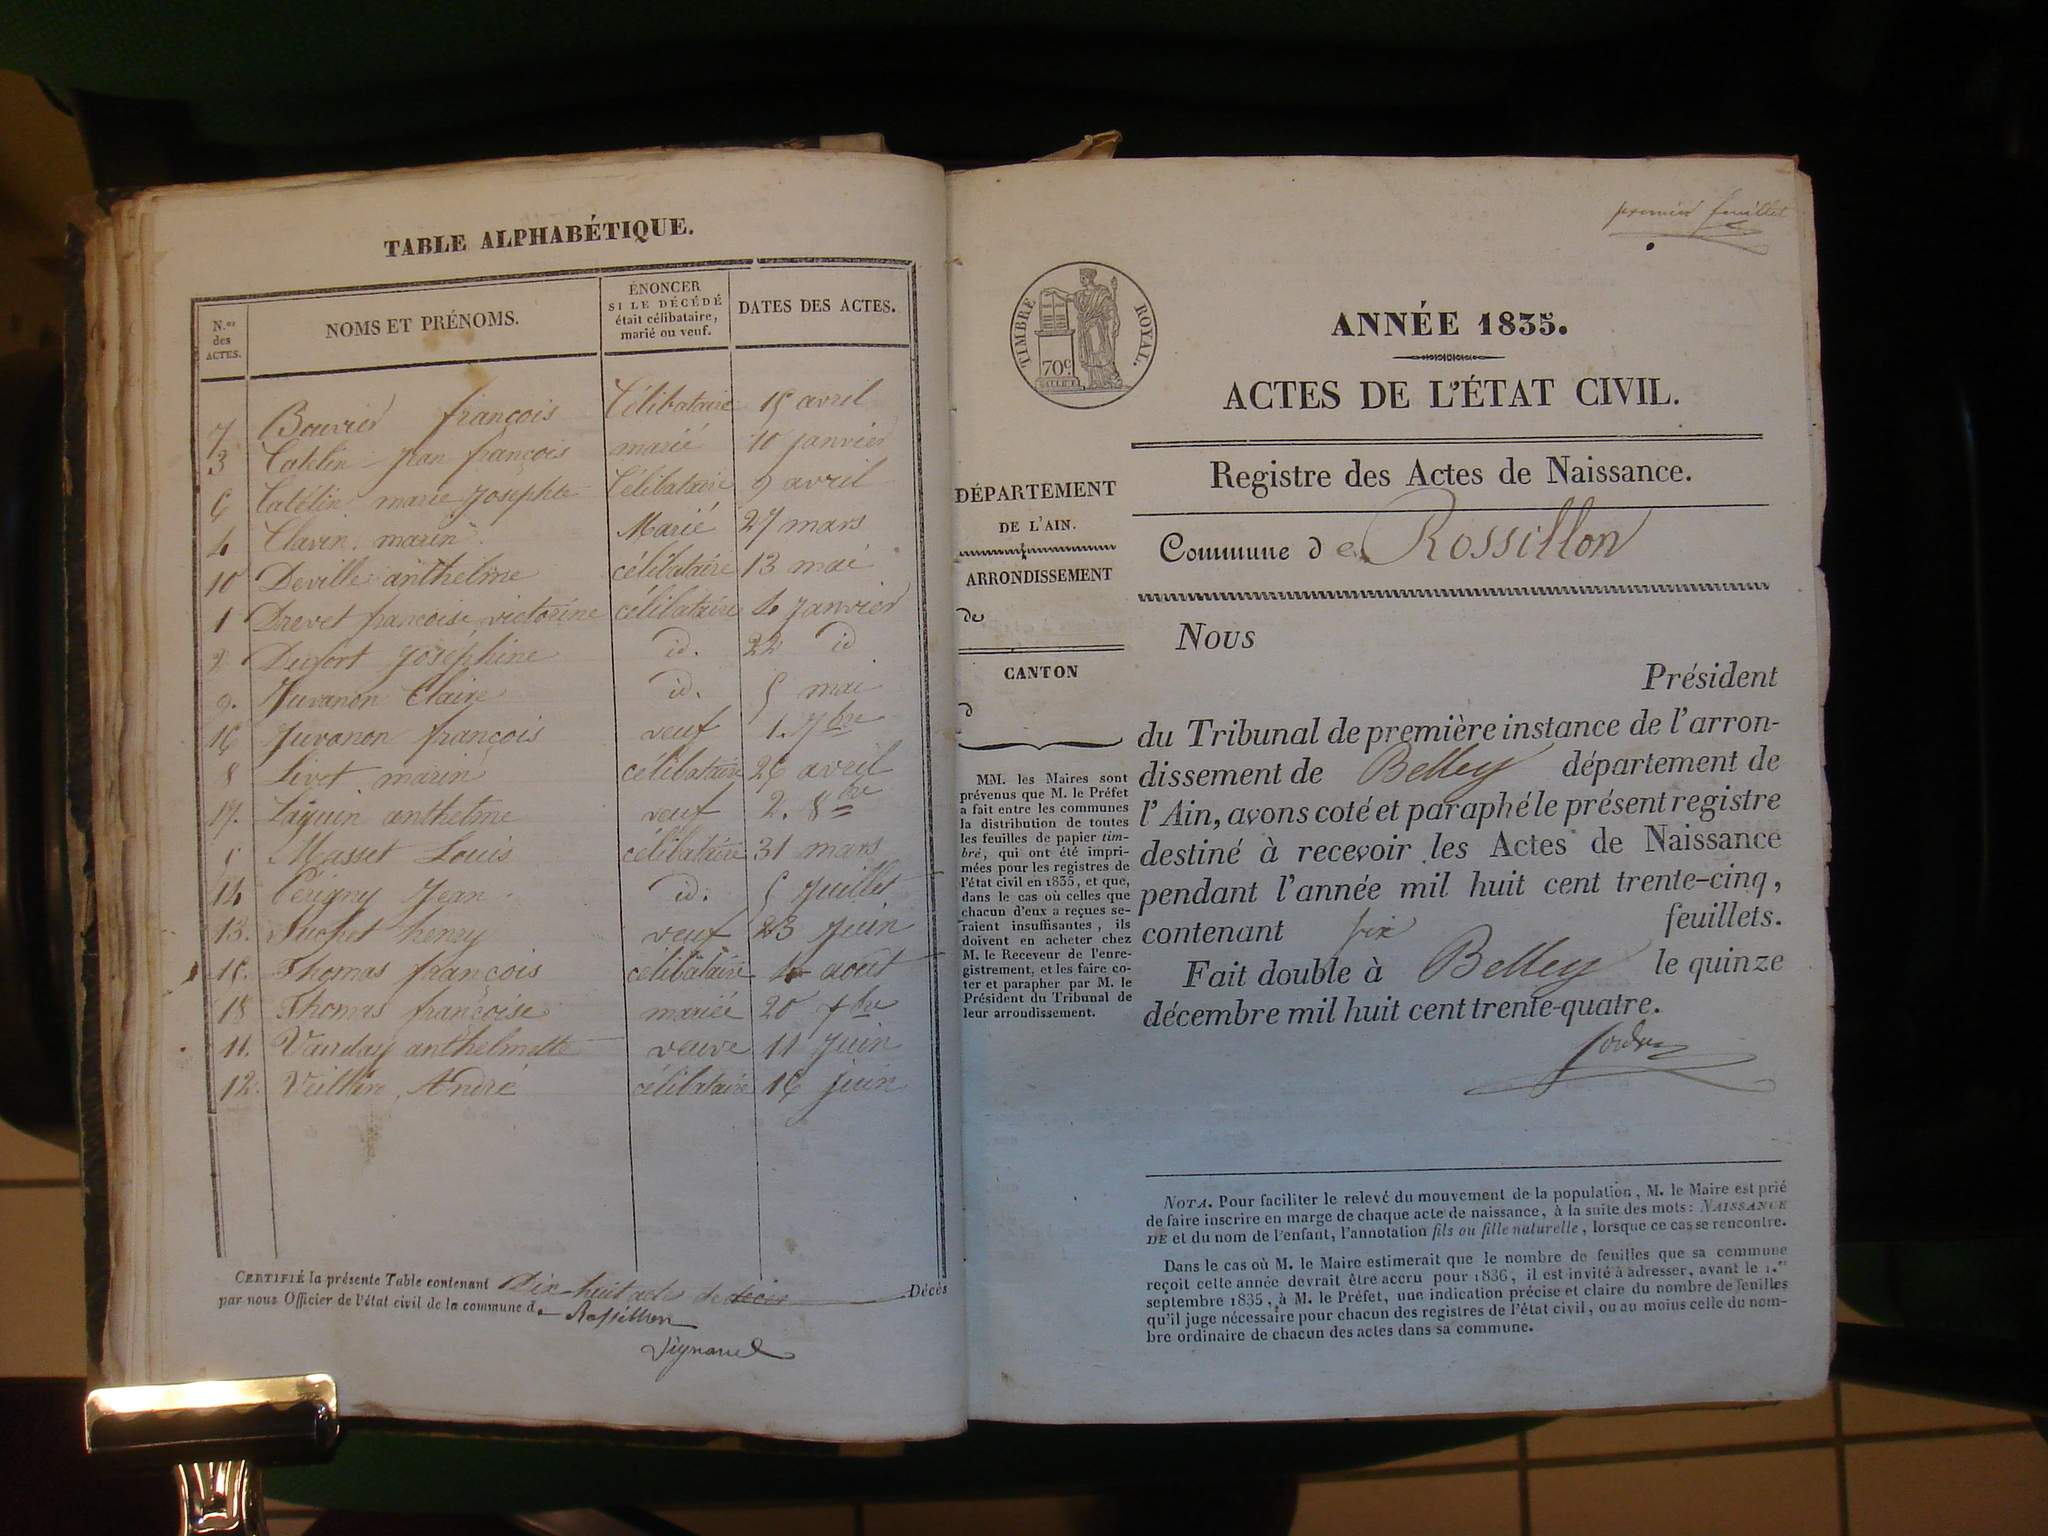 TABLE ALPHABÉTIQUE.
N.os des ACTES. NOMS ET PRÉNOMS. ÉNONCER SI LE DÉCÉDÉ était célibataire, marié ou veuf. DATES DES ACTES.
7 Bouvier françois Célibataire 15 avril
3 Catelin jean françois marié 10 janvier
6 Catélin marie josephte Célibataire 9 avril
4 Clavin marin Marié 27 mars
10 Deville anthelme célibataire 13 mai
1 Drevet francoise victorine célibataire 4 janvier
2 Dufort joséphine id. 22 id
9. Juvanon Claire id. 5 mai
16 Juvanon françois veuf 1. 7bre
8 Livet marin célibataire 26 avril
17. anthelme veuf 2. 8bre
5 Masset Louis célibataire 31 mars
14 Périgny Jean id. 5 Juillet
13. henry veuf 23 Juin
15. Thomas françois célibataire 4 août
18 Thomas françoise mariée 20
11. anthelmette veuve 11 Juin
12. André célibataire 16 juin
CERTIFIÉ la présente Table contenant Dix huit actes de décès Décès
par nous Officier de l'état civil de la commune de Rossillon
premier feuillet
TIMBRE ROYAL.
70c.
ANNÉE 1835.
ACTES DE L'ÉTAT CIVIL.
Registre des Actes de Naissance.
Commune de Rossillon
DÉPARTEMENT
DE L'AIN.
ARRONDISSEMENT
de
CANTON
d
MM. les Maires sont
prévenus que M. le Préfet
a fait entre les communes
la distribution de toutes
les feuilles de papier tim-
bré, qui ont été impri-
mées pour les registres de
l'état civil en 1835, et que,
dans le cas où celles que
chacun d'eux a reçues se-
raient insuffisantes, ils
doivent en acheter chez
M. le Receveur de l'enre-
gistrement, et les faire co-
ter et parapher par M. le
Président du Tribunal de
leur arrondissement.
Nous
Président
du Tribunal de première instance de l'arron-
dissement de Belley département de
l'Ain, avons coté et paraphé le présent registre
destiné à recevoir les Actes de Naissance
pendant l'année mil huit cent trente-cinq,
contenant six feuillets.
Fait double à Belley le quinze
décembre mil huit cent trente-quatre.
NOTA. Pour faciliter le relevé du mouvement de la population, M. le Maire est prié
de faire inscrire en marge de chaque acte de naissance, à la suite des mots: NAISSANCE
DE et du nom de l'enfant, l'annotation fils ou fille naturelle, lorsque ce cas se rencontre.
Dans le cas où M. le Maire estimerait que le nombre de feuilles que sa commune
reçoit cette année devrait être accru pour 1836, il est invité à adresser, avant le 1.er
septembre 1835, à M. le Préfet, une indication précise et claire du nombre de feuilles
qu'il juge nécessaire pour chacun des registres de l'état civil, ou au moins celle du nom-
bre ordinaire de chacun des actes dans sa commune.